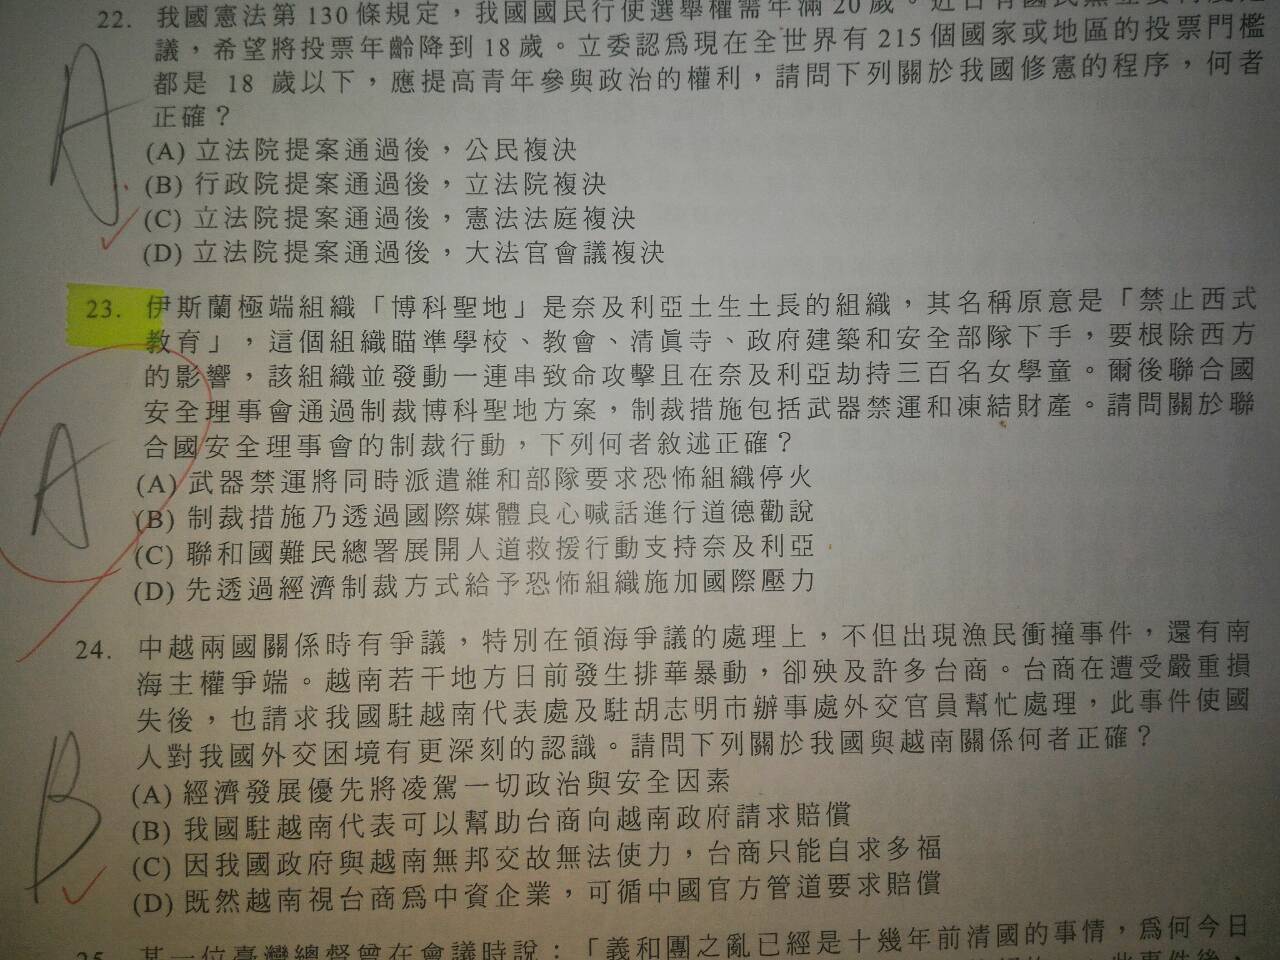 22. 我國憲法第130條規定，我國國民行使選舉權需年滿20歲。近日有國民黨立委
議，希望將投票年齡降到18歲。立委認爲現在全世界有215個國家或地區的投票門檻
都是 18 歲以下，應提高青年參與政治的權利，請問下列關於我國修憲的程序，何者
正確？
(A) 立法院提案通過後，公民複決
(B) 行政院提案通過後，立法院複決
(C) 立法院提案通過後，憲法法庭複決
(D) 立法院提案通過後，大法官會議複決
A
23. 伊斯蘭極端組織「博科聖地」是奈及利亞土生土長的組織，其名稱原意是「禁止西式
教育」，這個組織瞄準學校、教會、清眞寺、政府建築和安全部隊下手，要根除西方
的影響，該組織並發動一連串致命攻擊且在奈及利亞劫持三百名女學童。爾後聯合國
安全理事會通過制裁博科聖地方案，制裁措施包括武器禁運和凍結財產。請問關於聯
合國安全理事會的制裁行動，下列何者敘述正確？
(A) 武器禁運將同時派遣維和部隊要求恐怖組織停火
(B) 制裁措施乃透過國際媒體良心喊話進行道德勸說
(C) 聯和國難民總署展開人道救援行動支持奈及利亞
(D) 先透過經濟制裁方式給予恐怖組織施加國際壓力
A
24. 中越兩國關係時有爭議，特別在領海爭議的處理上，不但出現漁民衝撞事件，還有南
海主權爭端。越南若干地方日前發生排華暴動，卻殃及許多台商。台商在遭受嚴重損
失後，也請求我國駐越南代表處及駐胡志明市辦事處外交官員幫忙處理，此事件使國
人對我國外交困境有更深刻的認識。請問下列關於我國與越南關係何者正確？
(A) 經濟發展優先將凌駕一切政治與安全因素
(B) 我國駐越南代表可以幫助台商向越南政府請求賠償
(C) 因我國政府與越南無邦交故無法使力，台商只能自求多福
(D) 既然越南視台商爲中資企業，可循中國官方管道要求賠償
B
25. 某一位臺灣總督曾在會議時說：「義和團之亂已經是十幾年前清國的事情，爲何今日